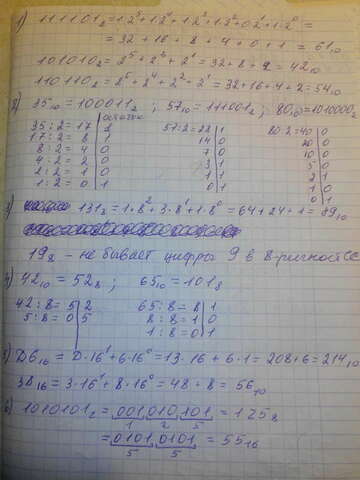 1) 111101₂ = 1·2⁵+1·2⁴+1·2³+1·2²+0·2¹+1·2⁰ =
= 32 + 16 + 8 + 4 + 0 + 1 = 61₁₀
101010₂ = 2⁵ + 2³ + 2¹ = 32+8+2 = 42₁₀
110110₂ = 2⁵ + 2⁴ + 2² + 2¹ = 32+16+4+2=54₁₀
2) 35₁₀ = 100011₂ ; 57₁₀ = 111001₂ ; 80₁₀=1010000₂
остаток
35 : 2 = 17 | 1 57:2=28 | 1 80:2=40 | 0
17 : 2 = 8 | 1 14 | 0 20 | 0
8 : 2 = 4 | 0 7 | 0 10 | 0
4 : 2 = 2 | 0 3 | 1 5 | 0
2 : 2 = 1 | 0 1 | 1 2 | 1
1 : 2 = 0 | 1 0 | 1 1 | 0
0 | 1
3) 131₈ = 1·8²+3·8¹+1·8⁰ = 64+24+1=89₁₀
19₈ - не бывает цифры 9 в 8-ричной СС
4) 42₁₀ = 52₈ ; 65₁₀ = 101₈
42 : 8 = 5 | 2 65 : 8 = 8 | 1
5 : 8 = 0 | 5 8 : 8 = 1 | 0
1 : 8 = 0 | 1
5) D6₁₆ = D·16¹+6·16⁰=13·16+6·1=208+6=214₁₀
38₁₆ = 3·16¹+8·16⁰ = 48+8 = 56₁₀
6) 1010101₂ = 001,010,101 = 125₈
1 2 5
= 0101,0101 = 55₁₆
5 5